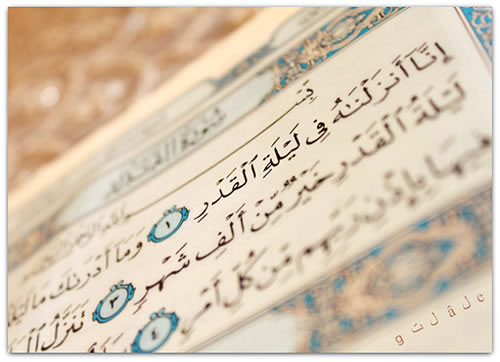 سُورَةُ القَدْرِ
إِنَّا أَنزَلْنَاهُ فِي لَيْلَةِ الْقَدْرِ ١ وَمَا أَدْرَاكَ مَا لَيْلَةُ
لَيْلَةُ الْقَدْرِ خَيْرٌ مِّنْ أَلْفِ شَهْرٍ ٣ تَنَزَّلُ
فِيهَا بِإِذْنِ رَبِّهِم مِّن كُلِّ أَمْرٍ ٤